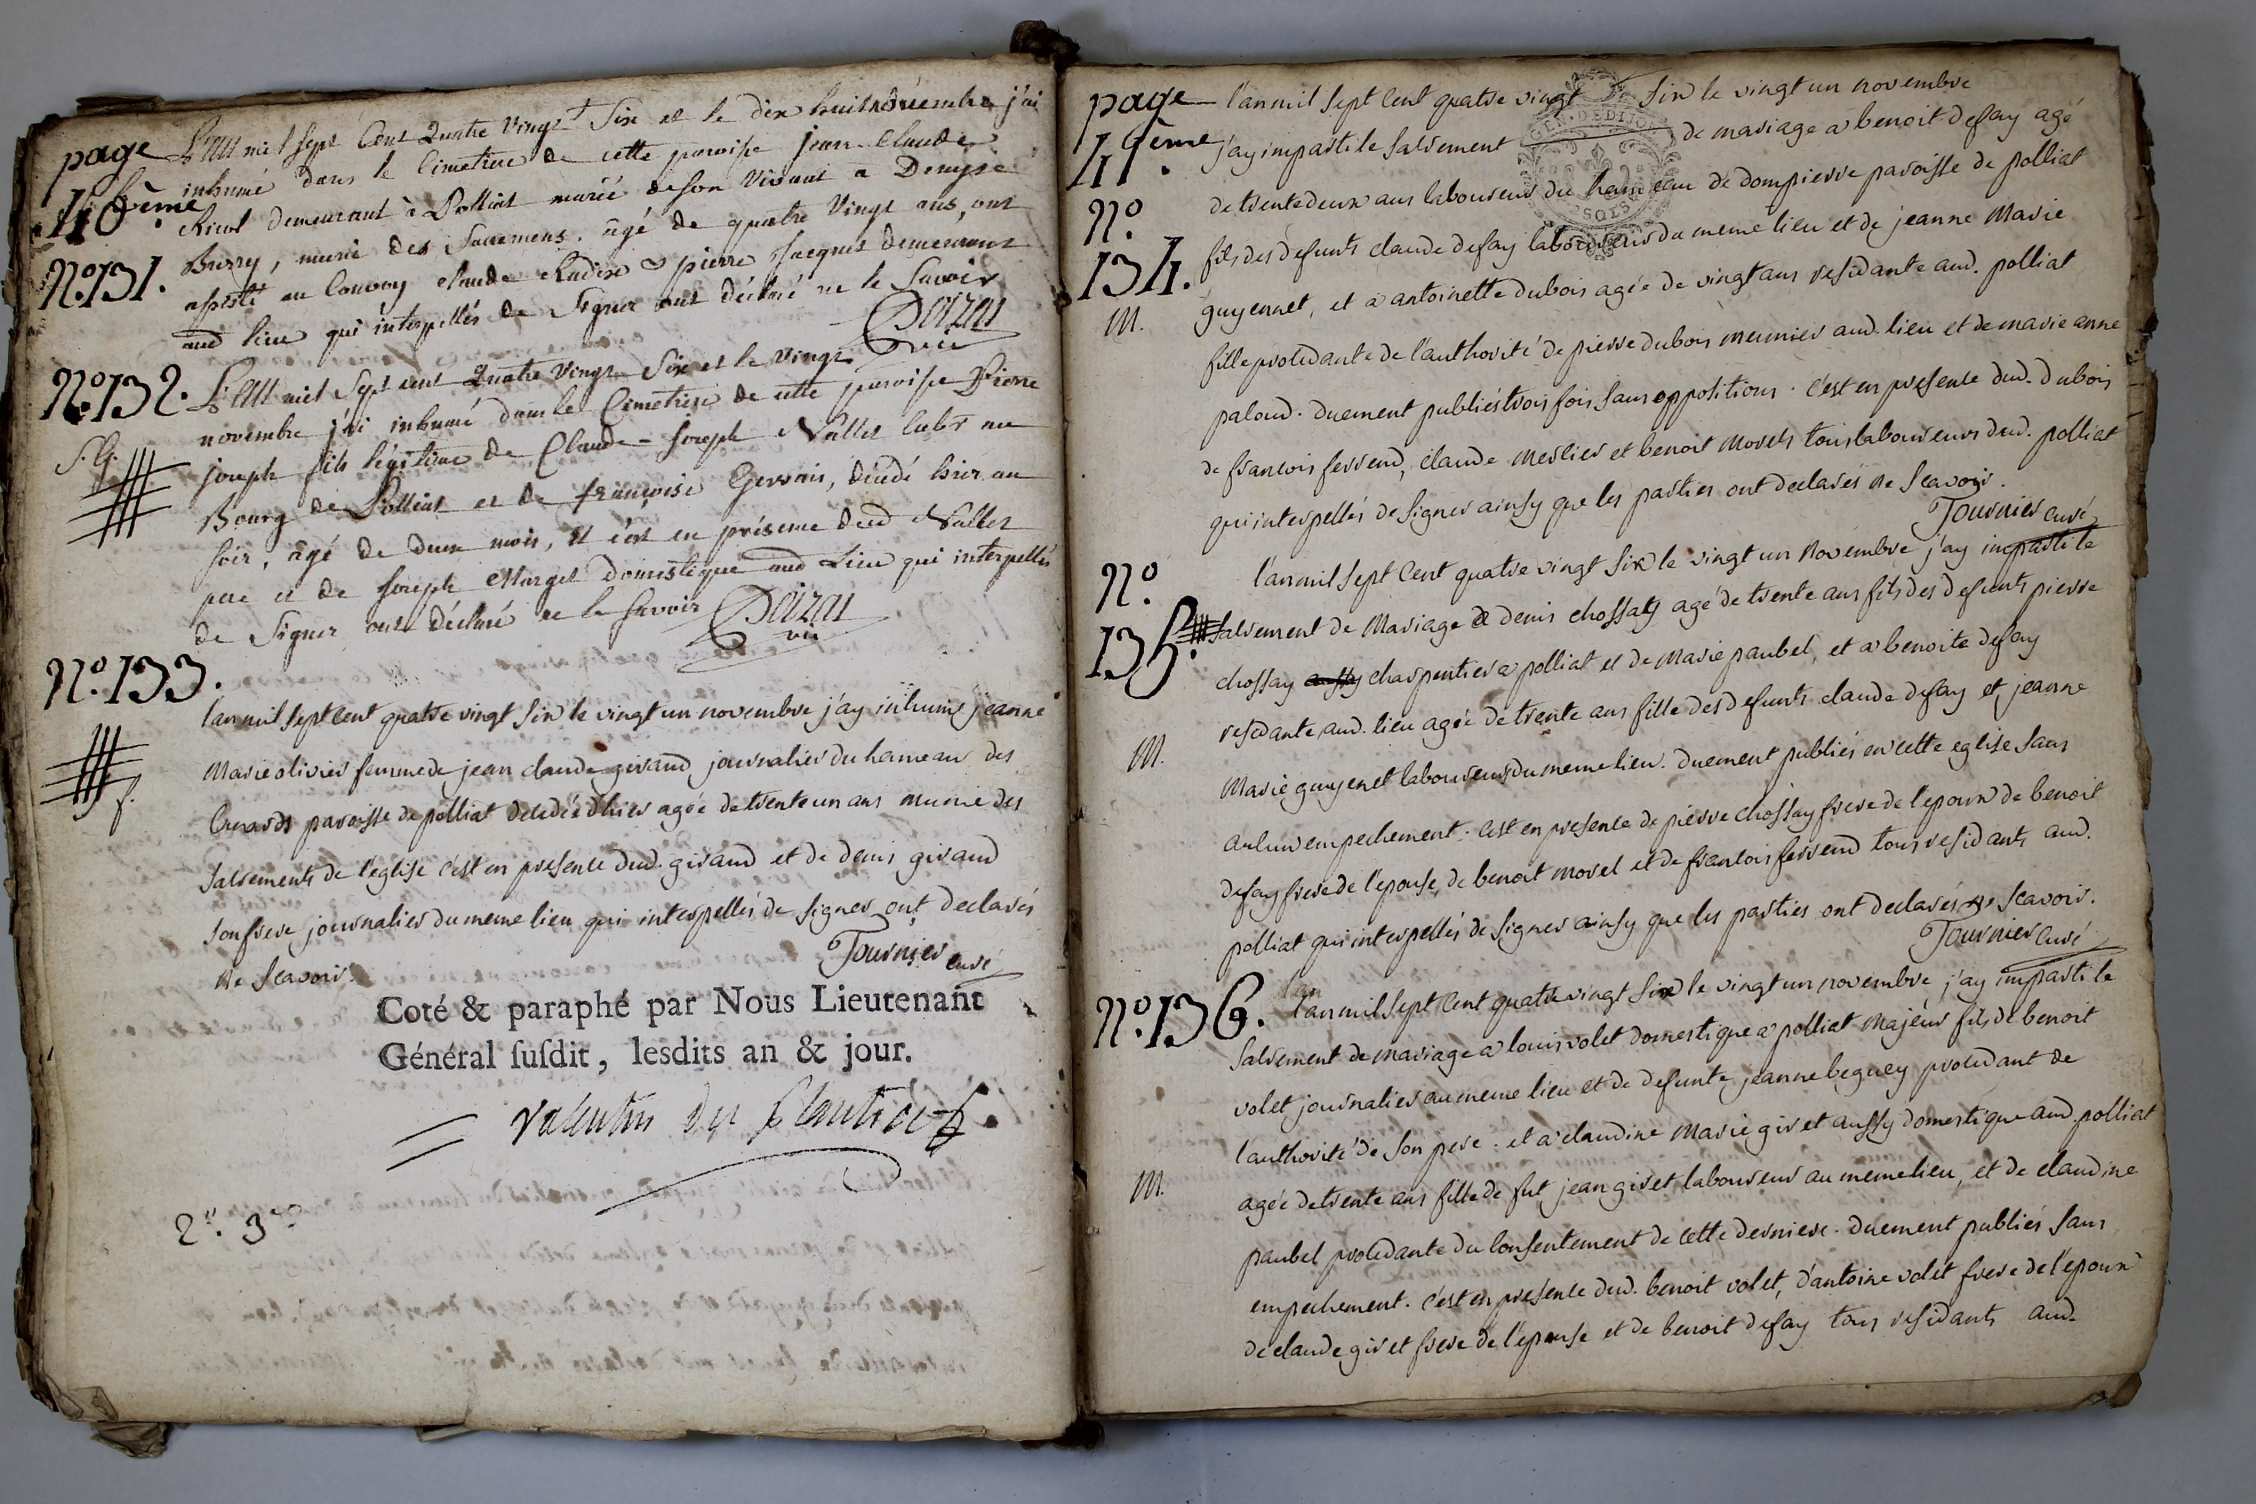 page
40ème.
N.o 131.
L'an mil sept Cent Quatre vingt Six et le dix huit novembre j'ai
inhumé dans le Cimetiere de cette paroisse jean-Claude
demeurant à Polliat marié de son vivant a Denyse
Burry, munie des Sacremens. âgé de quatre vingt ans, ont
assisté au Convoy claude & pierre jacquet demeurans
aud lieu qui interpellés de Signer ont déclaré ne le Savoir
Doizat
vic
N.o 132.
S. G.
L'an mil Sept cent Quatre Vingt Six et le Vingt
novembre j'ai inhumé dans le Cimetiere de cette paroisse Pierre
joseph fils légitime de Claude-joseph Nallet labr au
Bourg de Polliat et de françoise Gervais, décédé hier au
soir, âgé de deux mois, et c'est en présence dud Nallet
pere et de joseph Marget Domestique aud Lieu qui interpellés
de Signer ont déclaré ne le Savoir Doizat
vic
N.o 133.
f.
lan mil sept cent quatre vingt six le vingt un novembre j'ay inhumé jeanne
Marie olivier femme de jean claude giraud journalier du hameau des
Cruards paroisse de polliat decedée d'hier agée de trente un ans munie des
sacrements de l'eglise c'est en presence dud. giraud et de denis giraud
son frere journalier du meme lieu qui interpellés de signer ont declarés
ne scavoir.
Tournier curé
Coté & paraphé par Nous Lieutenant
Général ſuſdit, lesdits an & jour.
Valentin du Plantier
2.d. 3.
page
41ème.
N.o
134.
M.
l'an mil sept cent quatre vingt six le vingt un novembre
GEN. DE DIJON
j'ay imparti le sacrement de mariage a benoit defay agé
de trente deux ans laboureur du hameau de dompierre paroisse de polliat
SOLS
fils des defunts claude defay laboureurs du meme lieu et de jeanne Marie
guyennet, et a antoinette dubois agée de vingt ans residante aud. polliat
fille procedante de l'authorité de pierre dubois meunier aud. lieu et de marie anne
paloud. duement publiés trois fois sans oppositions. c'est en presence dud. dubois
de francois ferrend, claude merlier et benoit morels tous laboureurs dud. polliat
qui interpellés de signer ainsy que les parties ont declarés ne scavoir.
Tournier curé
N.o
135.
M.
l'an mil sept cent quatre vingt six le vingt un novembre j'ay imparti le
sacrement de Mariage a denis chossat agé de trente ans fils des defunts pierre
chossay aussy charpentier a polliat et de Marie paubel, et a benoite defay
residante aud. lieu agée de trente ans fille des defunts claude defay et jeanne
Marie guyenet laboureurs du meme lieu. duement publiés en cette eglise sans
aulcun empechement. c'est en presence de pierre chossay frere de l'epoux de benoit
defay frere de l'epouse, de benoit morel et de francois ferrend tous residants aud.
polliat qui interpellés de signer ainsy que les parties ont declarés ne scavoir.
Tournier curé
N.o 136.
M.
l'an
l'an mil sept cent quatre vingt six le vingt un novembre j'ay imparti le
sacrement de mariage a louis volet domestique a polliat majeur fils de benoit
volet journalier au meme lieu et de defunte jeanne beguey procedant de
l'authorité de son pere. et a claudine Marie giret aussy domestique aud. polliat
agée de trente ans fille de fut jean giret laboureur au meme lieu, et de claudine
paubel procedante du consentement de cette derniere. duement publiés sans
empechement. c'est en presence dud. benoit volet, d'antoine volet frere de l'epoux
de claude giret frere de l'epouse et de benoit defay tous residants aud.